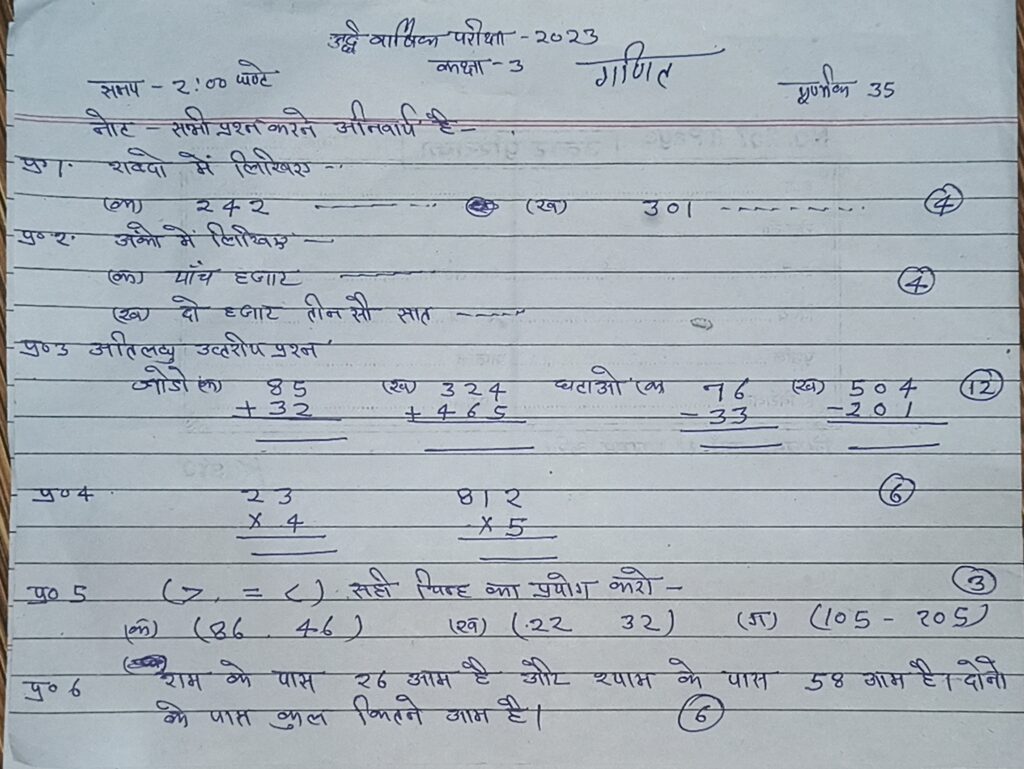 अर्द्ध वार्षिक परीक्षा - 2023
कक्षा - 3 गणित
समय - 2:00 घण्टे पूर्णांक 35
नोट - सभी प्रश्न करने अनिवार्य है -
प्र०1. शब्दो में लिखिए --
(क) 242 ------- (ख) 301 -------- (4)
प्र०2. अंको में लिखिए --
(क) पाँच हजार ------- (4)
(ख) दो हजार तीन सौ सात -----
प्र०3 अतिलघु उत्तरीय प्रश्न
जोडो (क) 85 (ख) 324 घटाओ (क 76 (ख) 504 (12)
+ 32 + 465 - 33 - 201
प्र०4 23 812 (6)
× 4 × 5
प्र० 5 (>, = <) सही चिन्ह का प्रयोग करो - (3)
(क) (86 . 46) (ख) (.22 32) (ग) (105 - 205)
प्र० 6 राम के पास 26 आम है और श्याम के पास 58 आम है। दोनो
के पास कुल कितने आम है। (6)